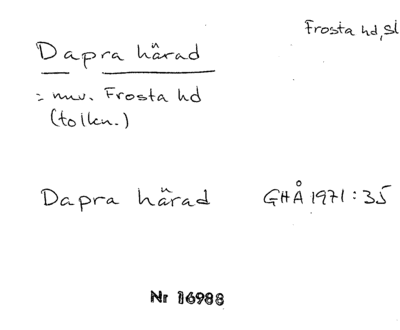 Frosta hd, Sk
Dapra härad
= nuv. Frosta hd
(tolkn.)
Dapra härad GHÅ 1971:35
Nr 16988